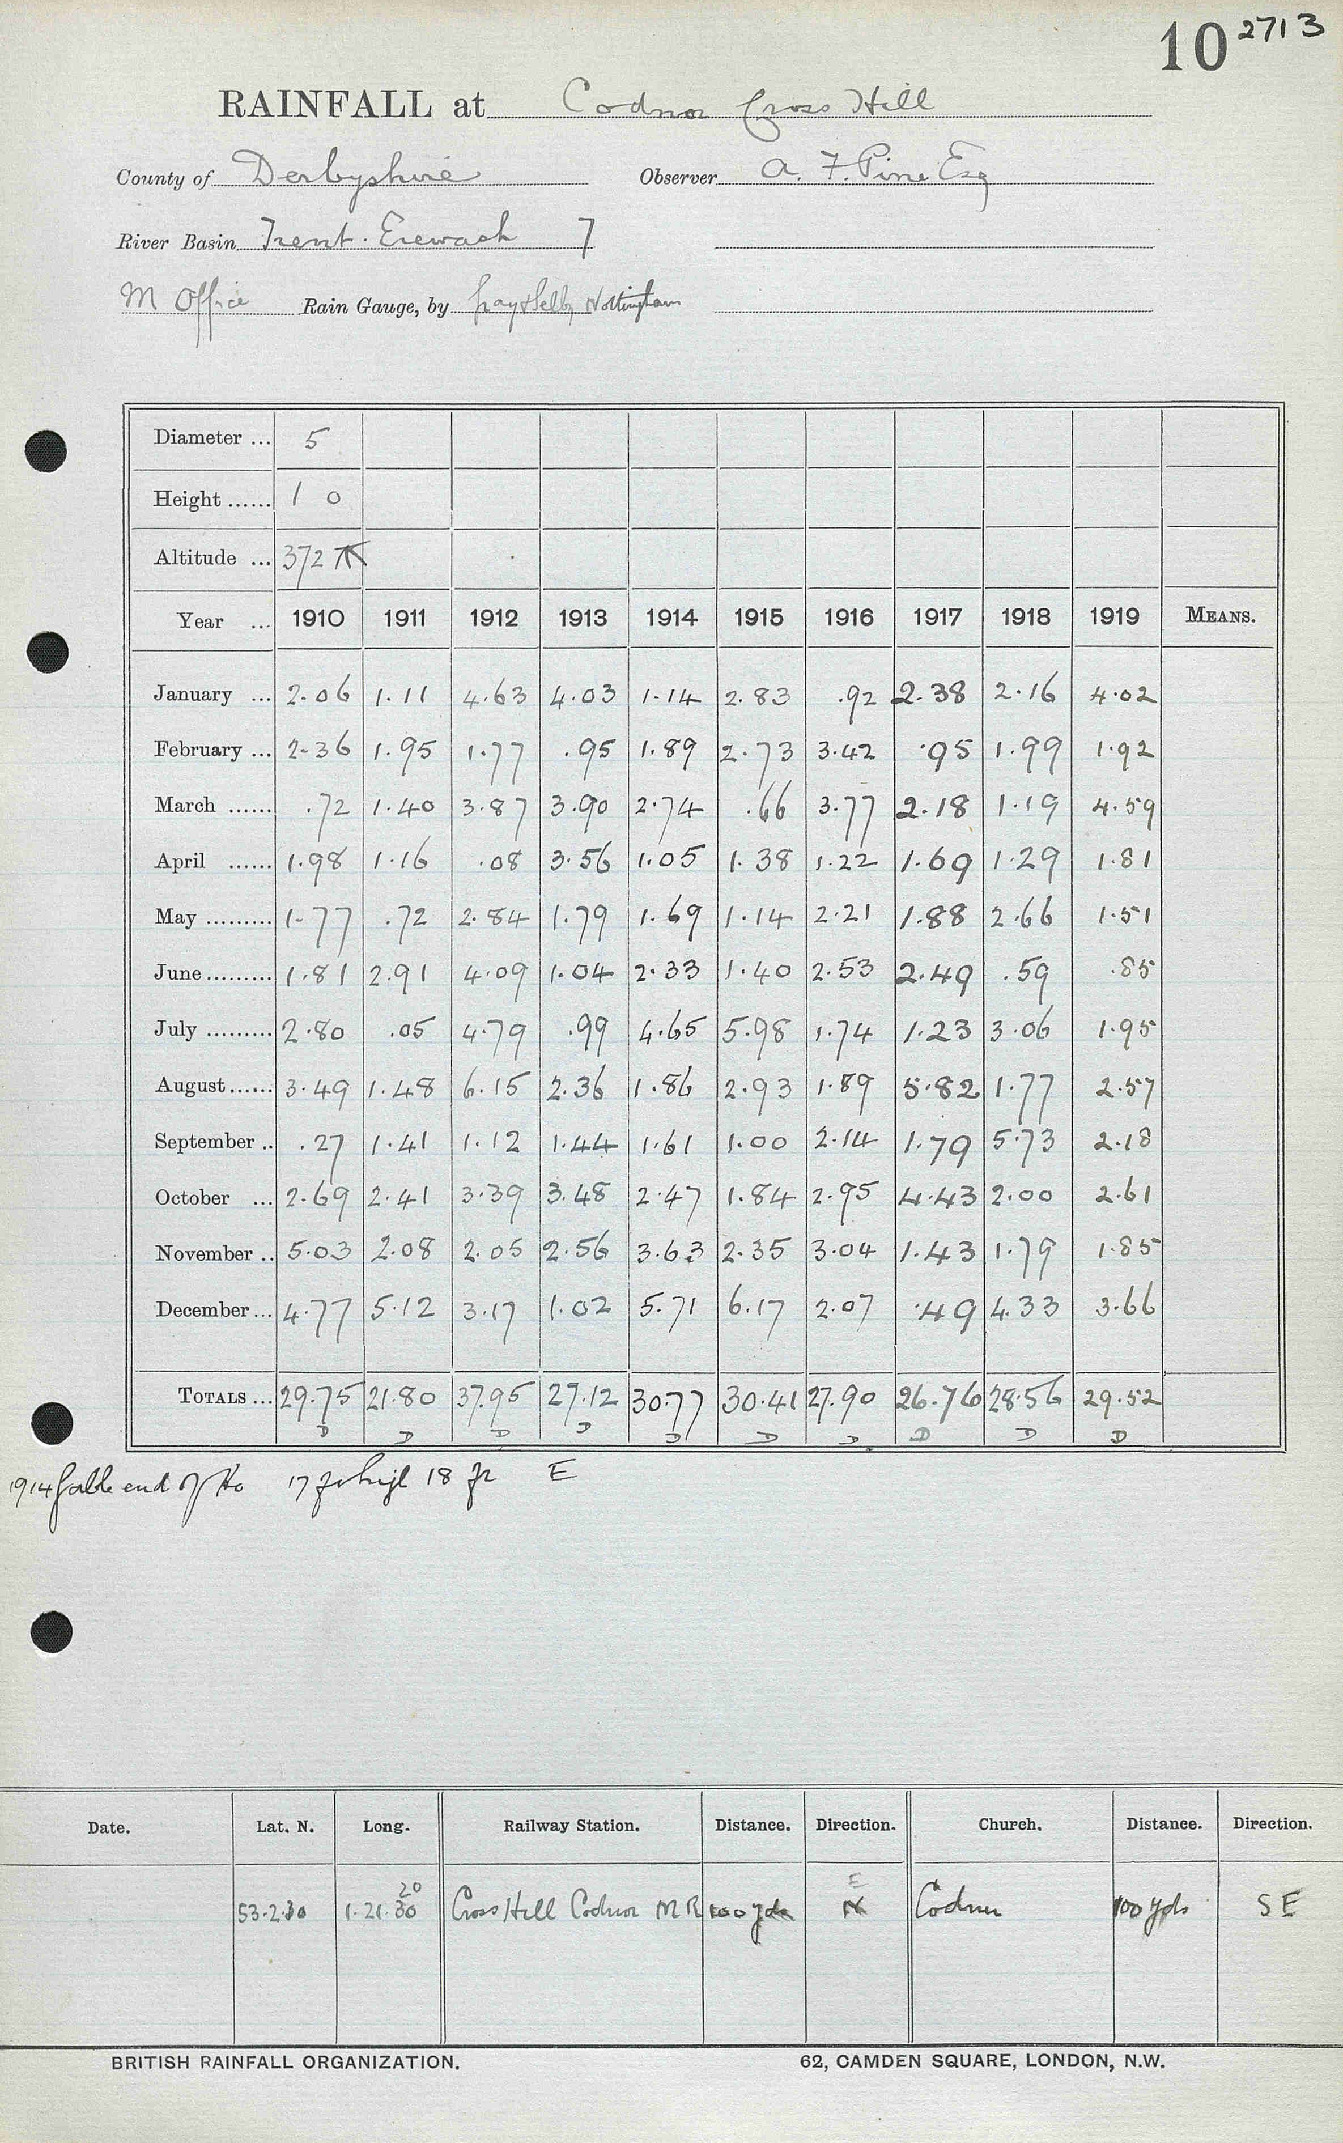 10 2713
RAINFALL at Codnor Cross Hill
County of Derbyshire Observer A. F. Pine Esq
River Basin Trent. Erewash 7
M Office Rain Gauge, by Nottingham
Diameter ... 5
Height ...... 1 0
Altitude ... 372
Year ... 1910 1911 1912 1913 1914 1915 1916 1917 1918 1919 MEANS.
January ... 2.06 1.11 4.63 4.03 1.14 2.83 .92 2.38 2.16 4.02
February ... 2.36 1.95 1.77 .95 1.89 2.73 3.42 .95 1.99 1.92
March ...... .72 1.40 3.87 3.90 2.74 .66 3.77 2.18 1.19 4.59
April ...... 1.98 1.16 .08 3.56 1.05 1.38 1.22 1.69 1.29 1.81
May ......... 1.77 .72 2.84 1.79 1.69 1.14 2.21 1.88 2.66 1.51
June ......... 1.81 2.91 4.09 1.04 2.33 1.40 2.53 2.49 .59 .85
July ......... 2.80 .05 4.79 .99 4.65 5.98 1.74 1.23 3.06 1.95
August ...... 3.49 1.48 6.15 2.36 1.86 2.93 1.89 5.82 1.77 2.57
September .. .27 1.41 1.12 1.44 1.61 1.00 2.14 1.79 5.73 2.18
October ... 2.69 2.41 3.39 3.48 2.47 1.84 2.95 4.43 2.00 2.61
November .. 5.03 2.08 2.05 2.56 3.63 2.35 3.04 1.43 1.79 1.85
December ... 4.77 5.12 3.17 1.02 5.71 6.17 2.07 .49 4.33 3.66
TOTALS ... 29.75 21.80 37.95 27.12 30.77 30.41 27.90 26.76 28.56 29.52
D D D D D D D D D D
1914 Gable end of Ho 17 ft high 18 ft E
Date. Lat. N. Long. Railway Station. Distance. Direction. Church. Distance. Direction.
20 E
53.2.30 1.21.30 Cross Hill Codnor M R 100 yds N Codnor 100 yds S E
BRITISH RAINFALL ORGANIZATION. 62, CAMDEN SQUARE, LONDON, N.W.